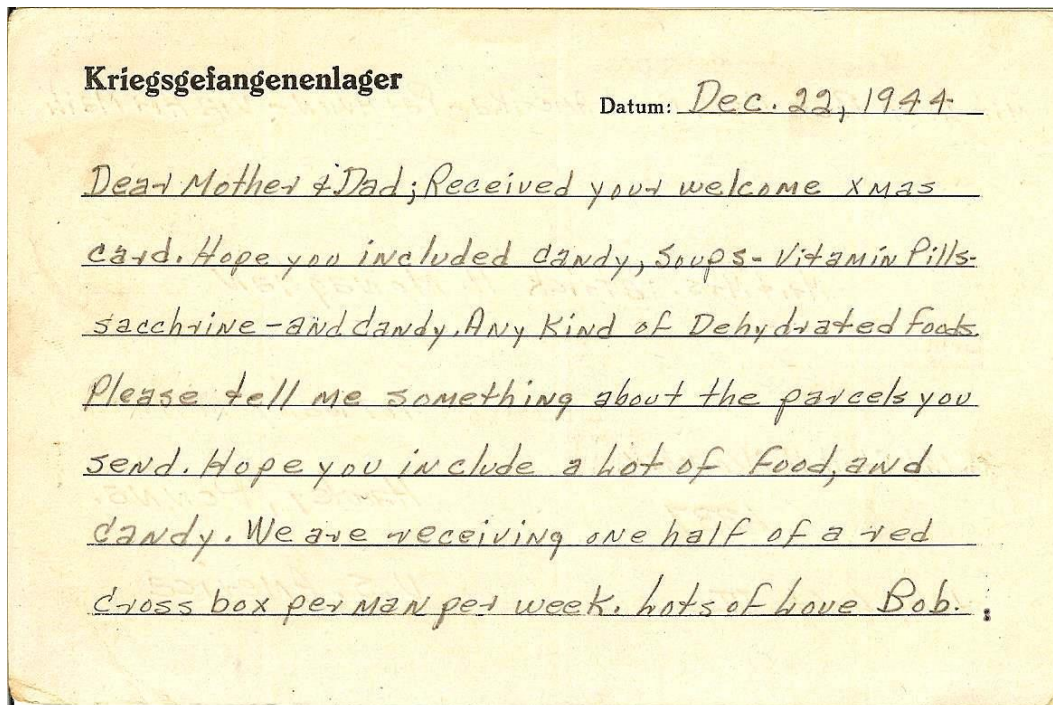 Kriegsgefangenenlager
Datum: Dec. 22, 1944
Dear Mother & Dad; Received your welcome xmas
card. Hope you included candy, soups - Vitamin Pills -
sacchrine - and candy. Any Kind of Dehydrated foods.
Please tell me something about the parcels you
send. Hope you include a Lot of Food, and
candy. We are receiving one half of a red
cross box per man per week. Lots of Love Bob.